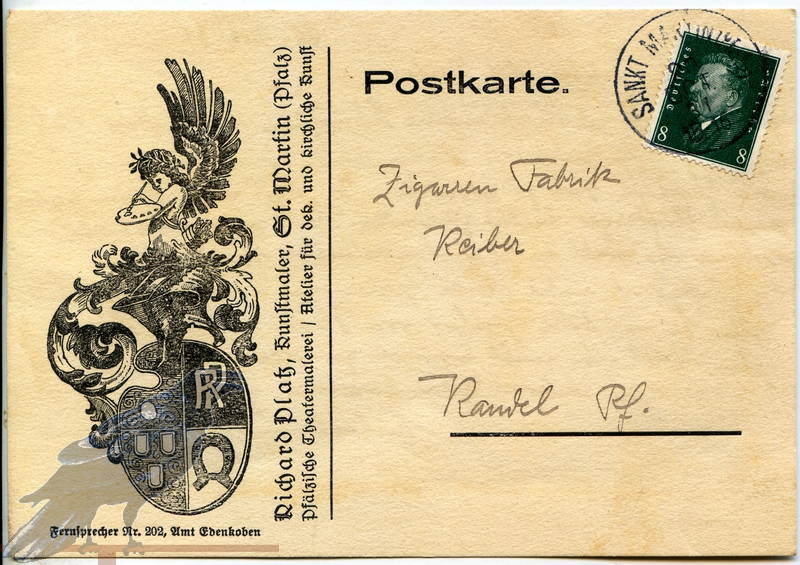 Postkarte.
SANKT MARTIN
Deutsches Reich
8 8
Zigarren Fabrik
Reiber
Kandel Pf.
Richard Platz, Kunstmaler, St. Martin (Pfalz)
Pfälzische Theatermalerei / Atelier für dek. und kirchliche Kunst
RP
Fernsprecher Nr. 202, Amt Edenkoben